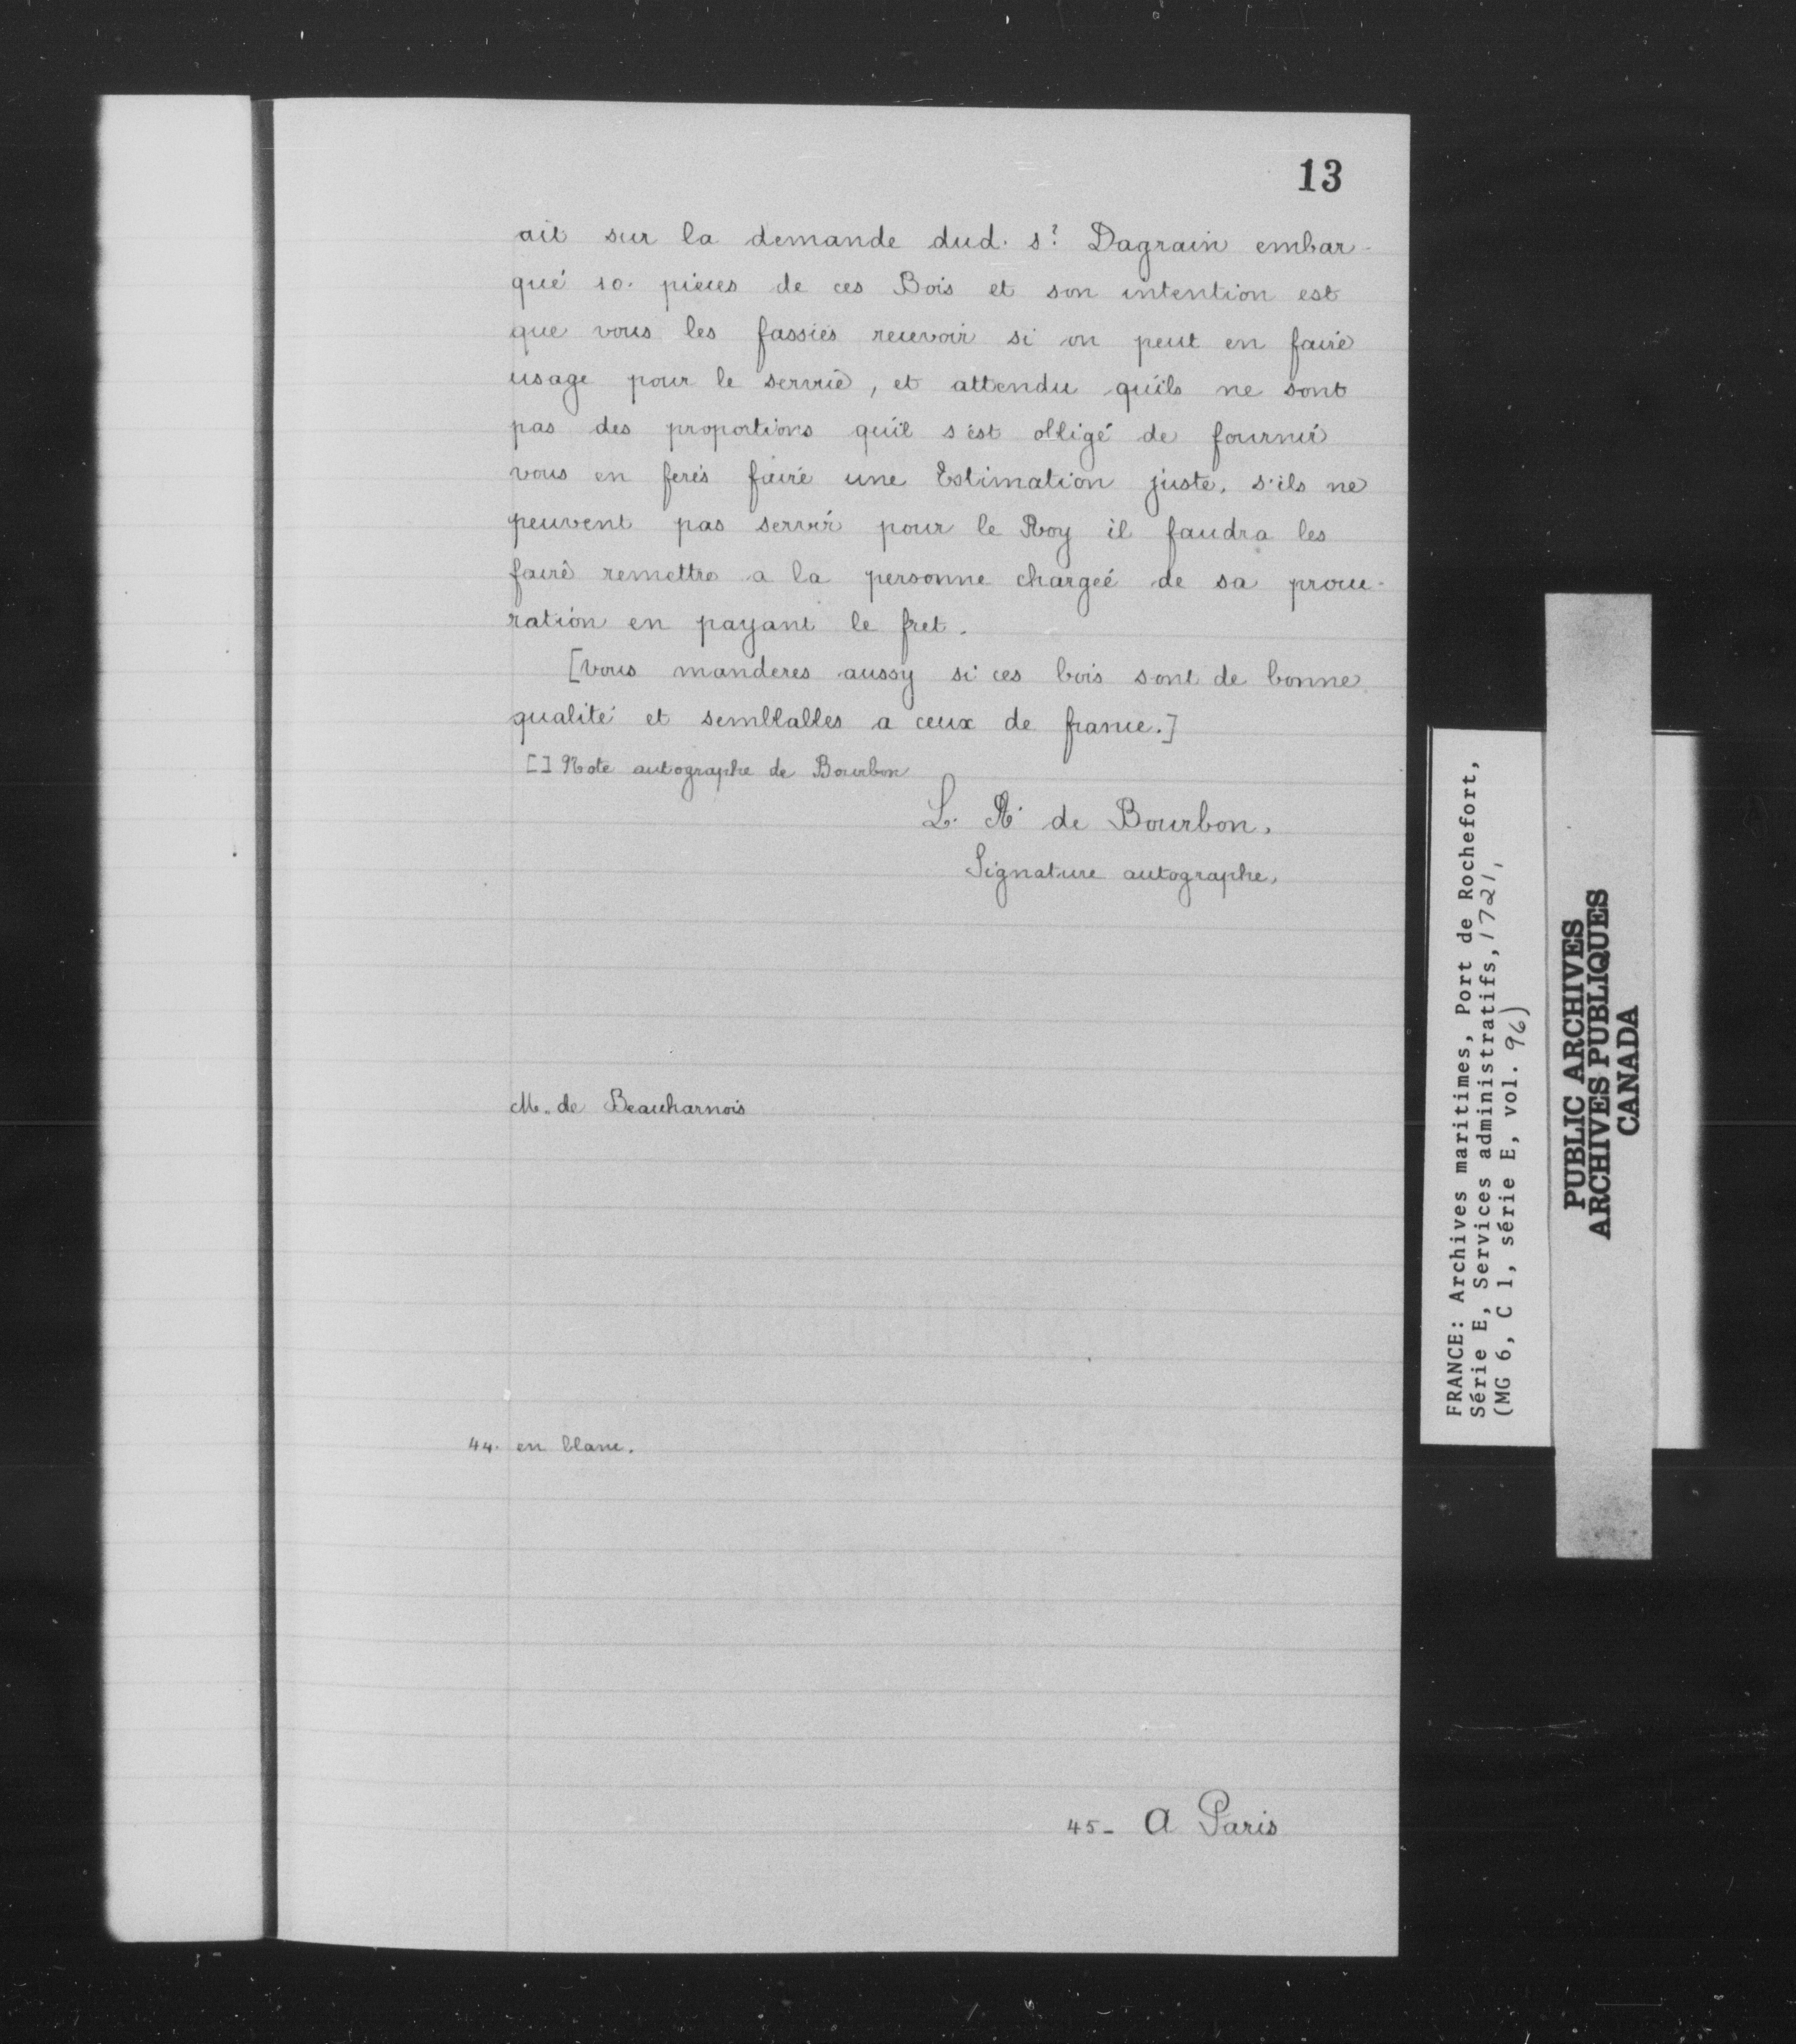 13
ait sur la demande dud. sr. Dagrain embar-
qué 10. pieces de ces Bois et son intention est
que vous les fassiés recevoir si on peut en faire
usage pour le service, et attendu qu'ils ne sont
pas des proportions qu'il s'est obligé de fournir
vous en ferés faire une Estimation juste, s'ils ne
peuvent pas servir pour le Roy il faudra les
faire remettre a la personne chargeé de sa procu-
ration en payant le fret.
[vous manderes aussy si ces bois sont de bonne
qualité et semblables a ceux de france.]
[] Note autographe de Bourbon
L. A. de Bourbon.
Signature autographe.
M. de Beauharnois
44. en blanc.
45- A Paris
FRANCE: Archives maritimes, Port de Rochefort,
Série E, Services administratifs, 1721,
(MG 6, C 1, série E, vol. 96)
PUBLIC ARCHIVES
ARCHIVES PUBLIQUES
CANADA